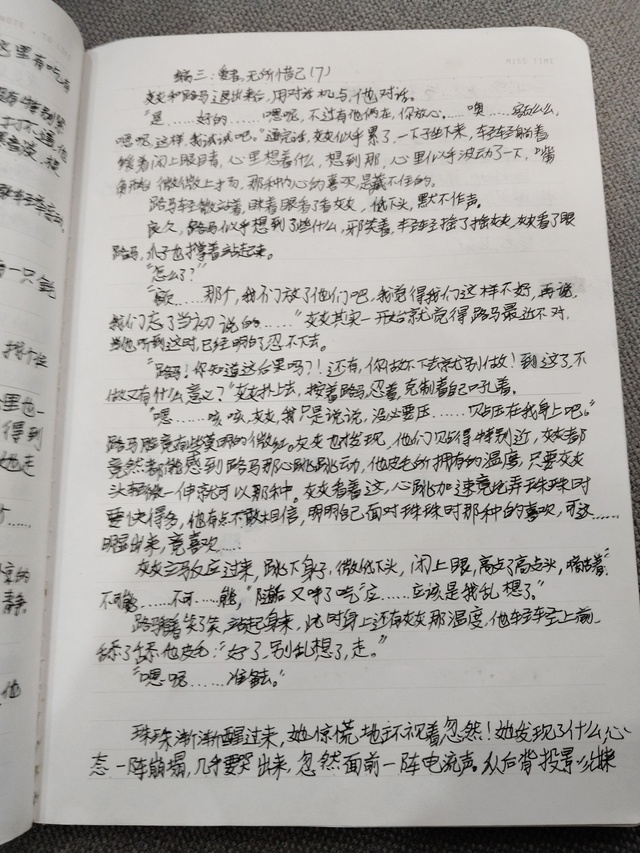 里有吃
编三:勇者,无所惜己(7)
灰灰和路马退出来后,用对讲机与他对话。
“是……好的……嗯呢,不过有他俩在,你放心。……噢……家么么,
嗯呢,这样,我试试吧。”通完话,灰灰似乎累了,一下子坐下来,轻轻躺着
闭上眼睛,心里想着什么,想到那,心里似乎波动了一下,嘴
角微微上扬,那种内心的喜欢是藏不住的。
路马轻微站着,眯着眼看了看灰灰,低下头,默不作声。
良久,路马似乎想到了些什么,邪笑着,轻轻摇了摇灰灰,灰灰看了眼
路马,爪子也撑着站起来。
“怎么了?”
“额……那个,我们放了他们吧,我觉得我们这样不好,再说,
我们忘了当初说的……”灰灰其实一开始就觉得路马最近不对,
当他听到这时,已经明白了忍不下去。
“路马!你知道这后果吗?!还有,你做不下去就别做!到这了,不
做又有什么意义?”灰灰扑上去,按着路马,忍着,克制着自己吼着。
“嗯……咳咳,灰灰,我只是说说,没必要压……贴压在我身上吧。”
路马脸竟有些莫明的微红。灰灰也发现,他们贴得特别近,灰灰都
竟然都能感到路马那心跳跳动,他皮毛所拥有的温度,只要灰灰
头轻微一伸就可以那种。灰灰看着这,心跳加速竟比弄珠珠时
要快得多,他有点不敢相信,明明自己面对珠珠时那种的喜欢,可这……
明显出来,竟喜欢……
灰灰立马反应过来,跳下身子,微低下头,闭上眼,高点了高点头,嘀咕着:
不可能……不可……能,“随后又哼了吃”应……应该是我乱想了。”
路马着笑了笑,站起身来,此时身上还有灰灰那温度,他轻轻上前,
舔了舔他皮毛:“好了,别乱想了,走。”
“嗯呢……准备去。”
珠珠渐渐醒过来,她惊慌地环视着忽然!她发现了什么,心
态一阵崩塌,几乎要哭出来,忽然面前一阵电流声。从后背投影出来